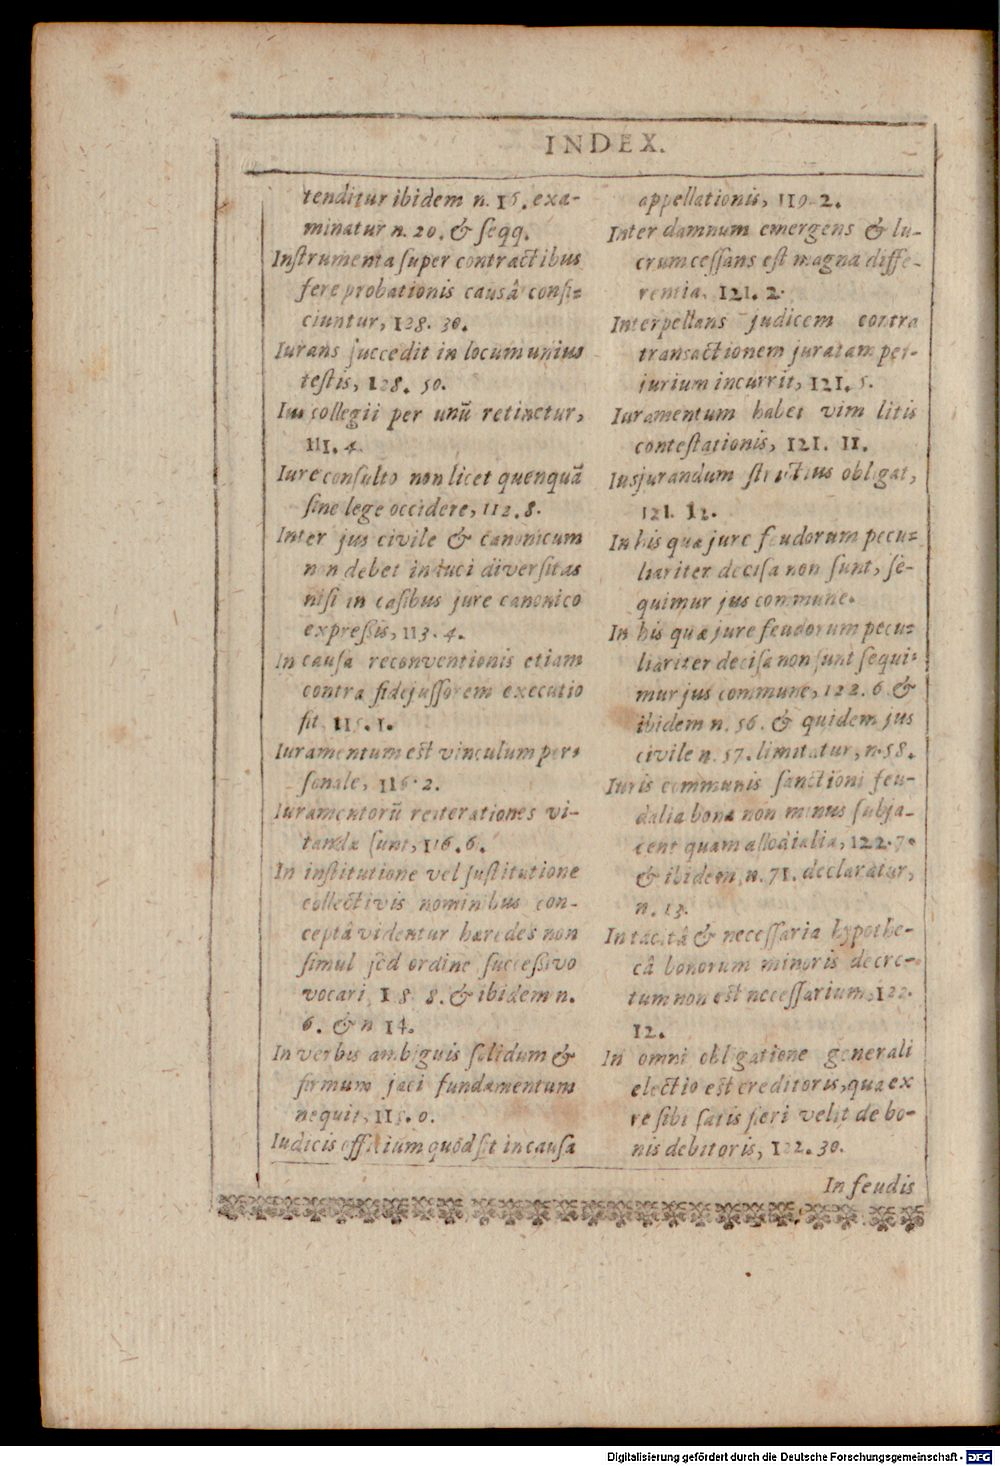 INDEX.
tenditur ibidem n. 15. exa-
minatur n. 20. & seqq.
Instrumenta super contractibus
fere probationis causâ confi-
ciuntur, 128. 30.
Iurans succedit in locum unius
testis, 128. 50.
Ius collegii per unũ retinetur,
111. 4.
Iure consulto non licet quenquã
sine lege occidere, 112. 8.
Inter jus civile & canonicum
non debet induci diversitas
nisi in casibus jure canonico
expressis, 113. 4.
In causa reconventionis etiam
contra fidejussorem executio
fit, 115. 1.
Iuramentum est vinculum per-
sonale, 116. 2.
Iuramentorũ reiterationes vi-
tandæ sunt, 116. 6.
In institutione vel justitutione
collectivis nominibus con-
ceptâ videntur hæredes non
simul sed ordine successivo
vocari, 8. & ibidem n.
6. & n 14.
In verbis ambiguis solidum &
firmum jaci fundamentum
nequit,
Iudicis officium quod sit in causa
appellationis, 119. 2.
Inter damnum emergens & lu-
crum cessans est magna diffe-
rentia, 121. 2.
Interpellans judicem contra
transactionem juratam per-
jurium incurrit, 121. 5.
Iuramentum habet vim litis
contestationis, 121. 11.
Iusjurandum strictius obligat,
121. 12.
In his quæ jure feudorum pecu-
liariter decisa non sunt, se-
quimur jus commune.
In his quæ jure feudorum pecu-
liariter decisa non sunt sequi-
mur jus commune, 122. 6 &
ibidem n. 56. & quidem jus
civile n. 57. limitatur, n. 58.
Iuris communis sanctioni feu-
dalia bona non minus subja-
cent quam allodialia, 122. 70
& ibidem, n. 71. declaratur,
n. 13.
In tacitâ & necessaria hypothe-
câ bonorum minoris decre-
tum non est necessarium, 122.
12.
In omni obligatione generali
electio est creditoris, qua ex
re sibi satis fieri velit de bo-
nis debitoris, 122. 30.
In feudis
Digitalisierung gefördert durch die Deutsche Forschungsgemeinschaft - DFG